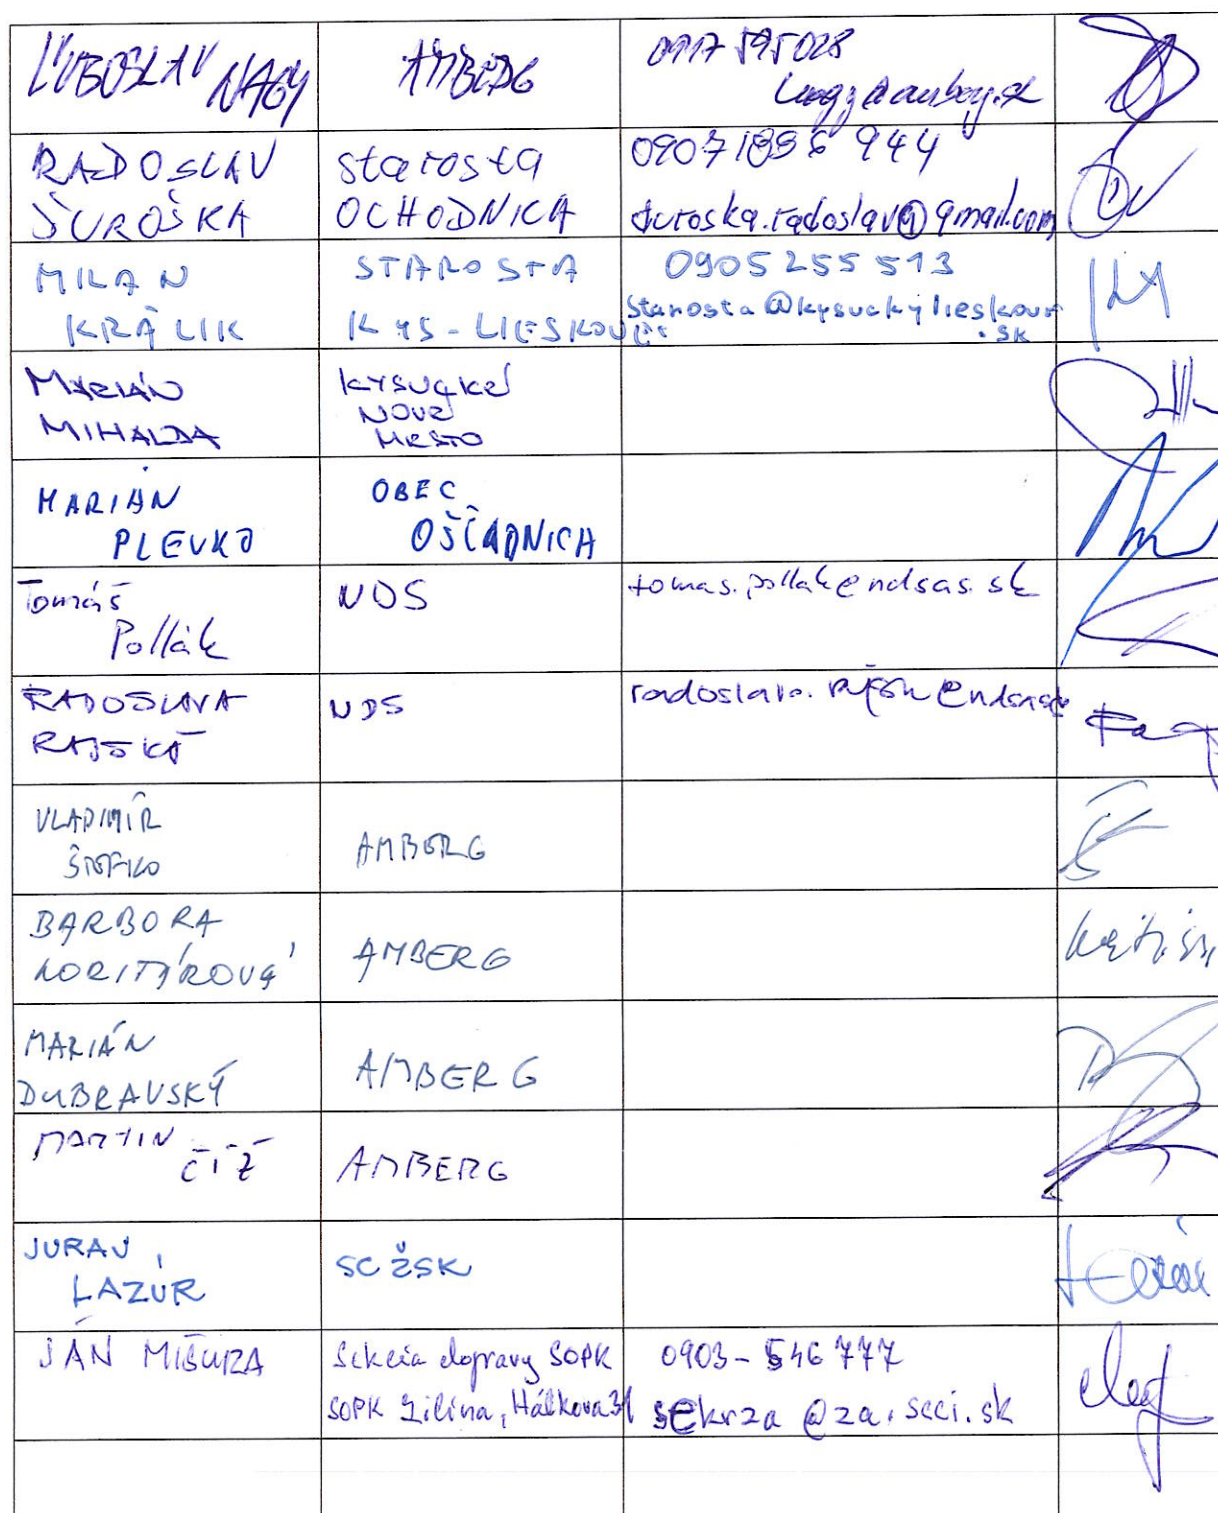 ĽUBOSLAV NAGY
AMBERG
0917 595 028
RADOSLAV
ĎUROŠKA
starosta
OCHODNICA
duroska.radoslav@gmail.com
MILAN
KRÁLIK
STAROSTA
KYS-LIESKOVEC
0905 255 513
starosta@kysuckylieskovec
.sk
MARIÁN
MIHALDA
KYSUCKÉ
NOVÉ
MESTO
MARIÁN
PLEVKO
OBEC
OŠČADNICA
Tomáš
Pollák
NDS
tomas.pollak@ndsas.sk
RADOSLAVA
RAJSKÁ
NDS
VLADIMÍR
ŠTEFKO
AMBERG
BARBORA
AMBERG
MARIÁN
DUBRAVSKÝ
AMBERG
MARTIN
ČÍŽ
AMBERG
JURAJ
LAZÚR
SC ŽSK
JÁN MIŠURA
Sekcia dopravy SOPK
SOPK Žilina, Hálkova 31
0903-546 777
sekrza@za.scci.sk